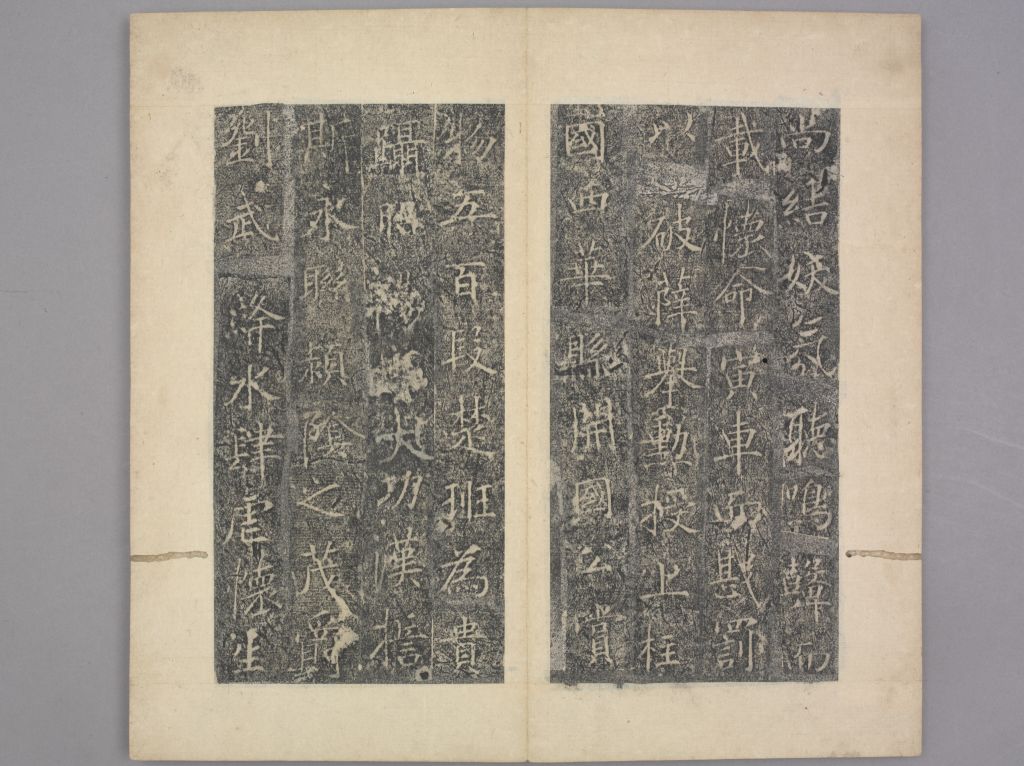 尚結妖氛聽鳴鼙而
載懷命寅車而戡罰
以破薛舉勳授上柱
國西華縣開國公賞
物五百段楚班為貴
躡昭陽功漢
斯永聯潁陰之茂爵
劉武洚水肆虐懷生